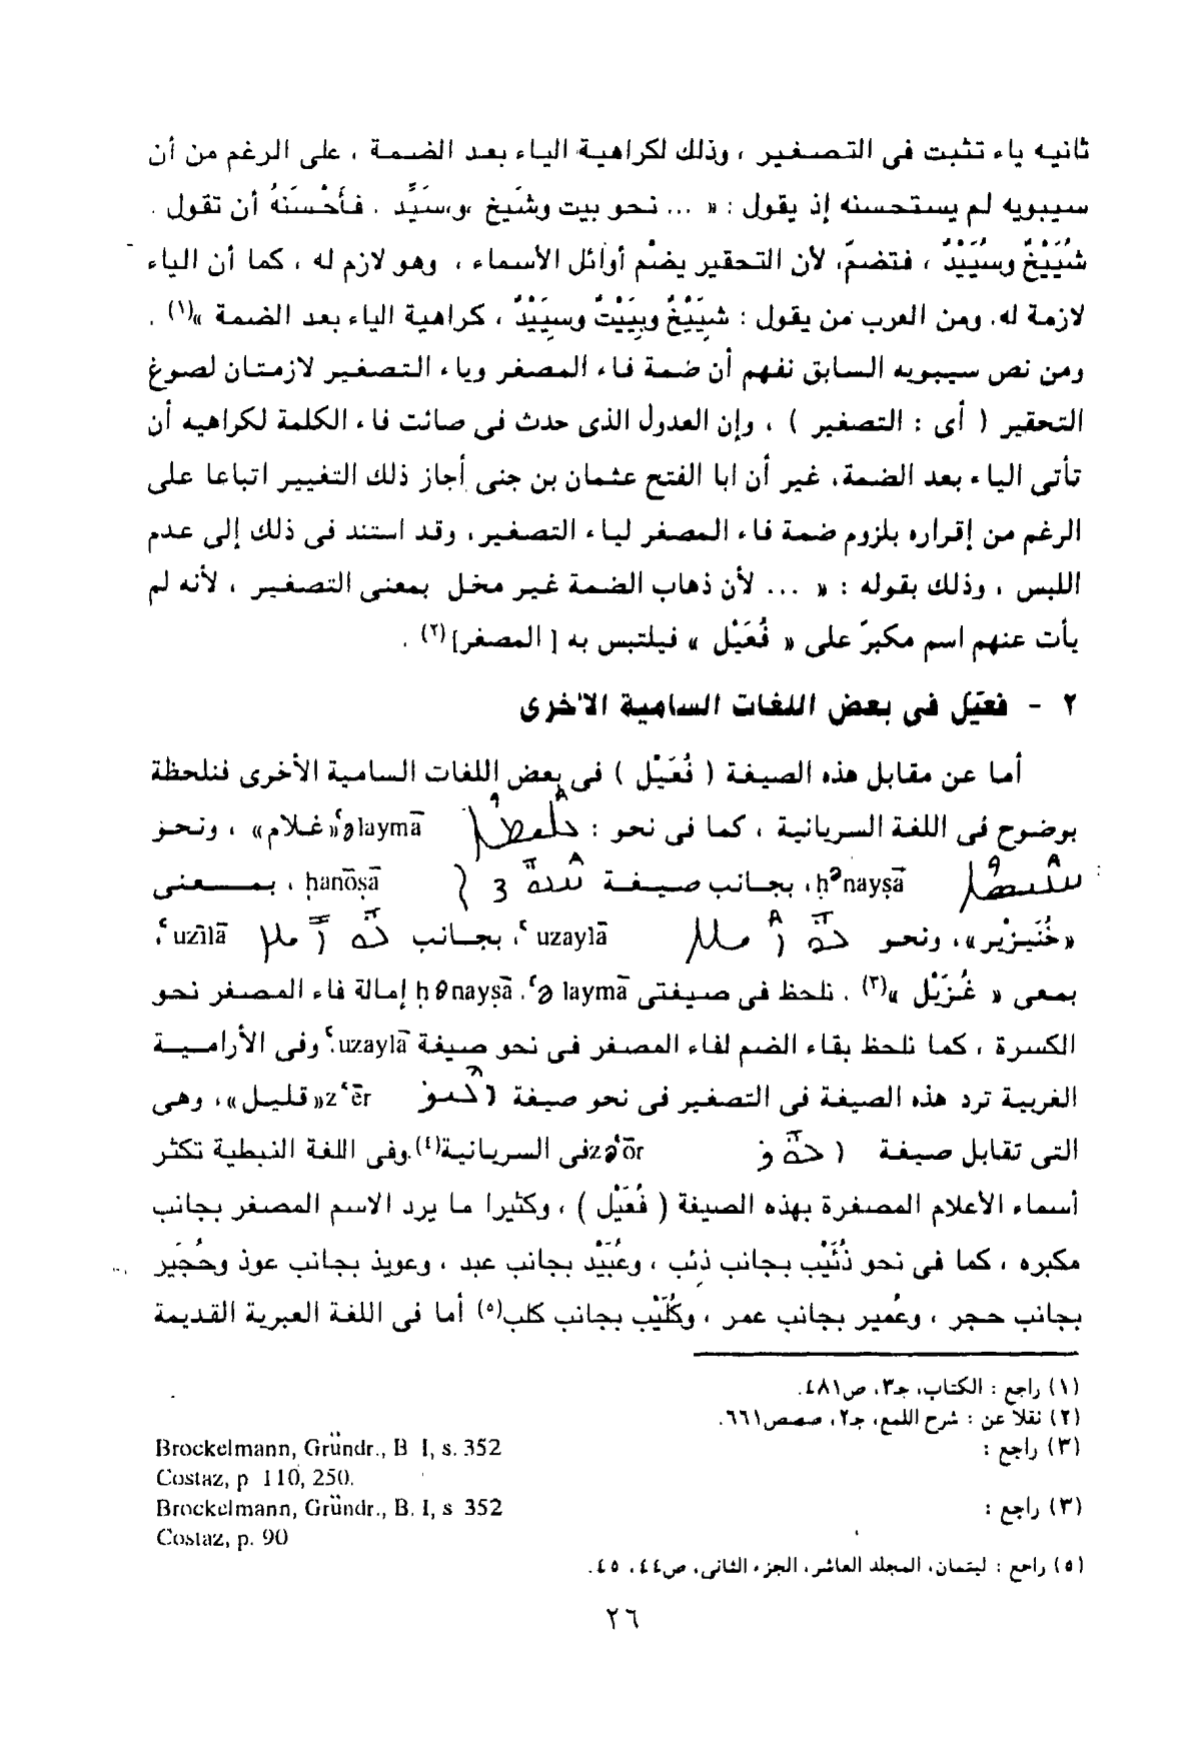 ثانيه ياء تثبت فى التصغير ، وذلك لكراهية الياء بعد الضمة ، على الرغم من أن
سيبويه لم يستحسنه إذ يقول : « ... نحو بيت وشَيخ ،و،سَيَّد . فأَحْسَنَهُ أن تقول .
شُيَيْخٌ وسُيَيْدٌ ، فتضمّ، لأن التحقير يضُم أوائل الأسماء ، وهو لازم له ، كما أن الياء
لازمة له. ومن العرب من يقول : شِيَيْخٌ وبِيَيْتٌ وسِيَيْدٌ ، كراهية الياء بعد الضمة »(١) .
ومن نص سيبويه السابق نفهم أن ضمة فاء المصغر وياء التصغير لازمتان لصوغ
التحقير ( أى : التصغير ) ، وإن العدول الذى حدث فى صائت فاء الكلمة لكراهيه أن
تأتى الياء بعد الضمة، غير أن ابا الفتح عثمان بن جنى أجاز ذلك التغيير اتباعا على
الرغم من إقراره بلزوم ضمة فاء المصغر لياء التصغير، وقد استند فى ذلك إلى عدم
اللبس ، وذلك بقوله : « ... لأن ذهاب الضمة غير مخل بمعنى التصغير ، لأنه لم
يأت عنهم اسم مكبرّ على « فُعَيْل » فيلتبس به [ المصغر](٢) .
٢ - فعيل فى بعض اللغات السامية الأخرى
أما عن مقابل هذه الصيغة ( فُعَيْل ) فى بعض اللغات السامية الأخرى فنلحظة
بوضوح فى اللغة السريانية ، كما فى نحو : ʿəlaymā «غلام» ، ونحو
ḥənayṣā، بجانب صيغة ḥanōṣā ، بمعنى
«خُنَيزْير»، ونحو ʿuzaylā، بجانب ʿuzīlā،
بمعى « غُزَيْل »(٣) . نلحظ فى صيغتى ʿə laymā ، ḥənayṣā إمالة فاء المصغر نحو
الكسرة ، كما نلحظ بقاء الضم لفاء المصغر فى نحو صيغة ʿuzaylā. وفى الأرامية
الغربية ترد هذه الصيغة فى التصغير فى نحو صيغة zʿēr «قليل»، وهى
التى تقابل صيغة zəʿōr فى السريانية(٤).وفى اللغة النبطية تكثر
أسماء الأعلام المصغرة بهذه الصيغة ( فُعَيْل ) ، وكثيرا ما يرد الاسم المصغر بجانب
مكبره ، كما فى نحو ذُئَيْب بجانب ذئب ، وعُبَيْد بجانب عبد ، وعويذ بجانب عوذ وحُجَير
بجانب حجر ، وعُمير بجانب عمر ، وكُلَيْب بجانب كلب(٥) أما فى اللغة العبرية القديمة
(١) راجع : الكتاب، جـ٣، ص٤٨١.
(٢) نقلا عن : شرح اللمع، جـ٢، صصص٦٦١.
(٣) راجع : Brockelmann, Gründr., B I, s. 352
Costaz, p 110, 250.
(٣) راجع : Brockelmann, Gründr., B. I, s 352
Costaz, p. 90
(٥) راجع : ليتمان، المجلد العاشر، الجزء الثانى، ص٤٤، ٤٥.
٢٦